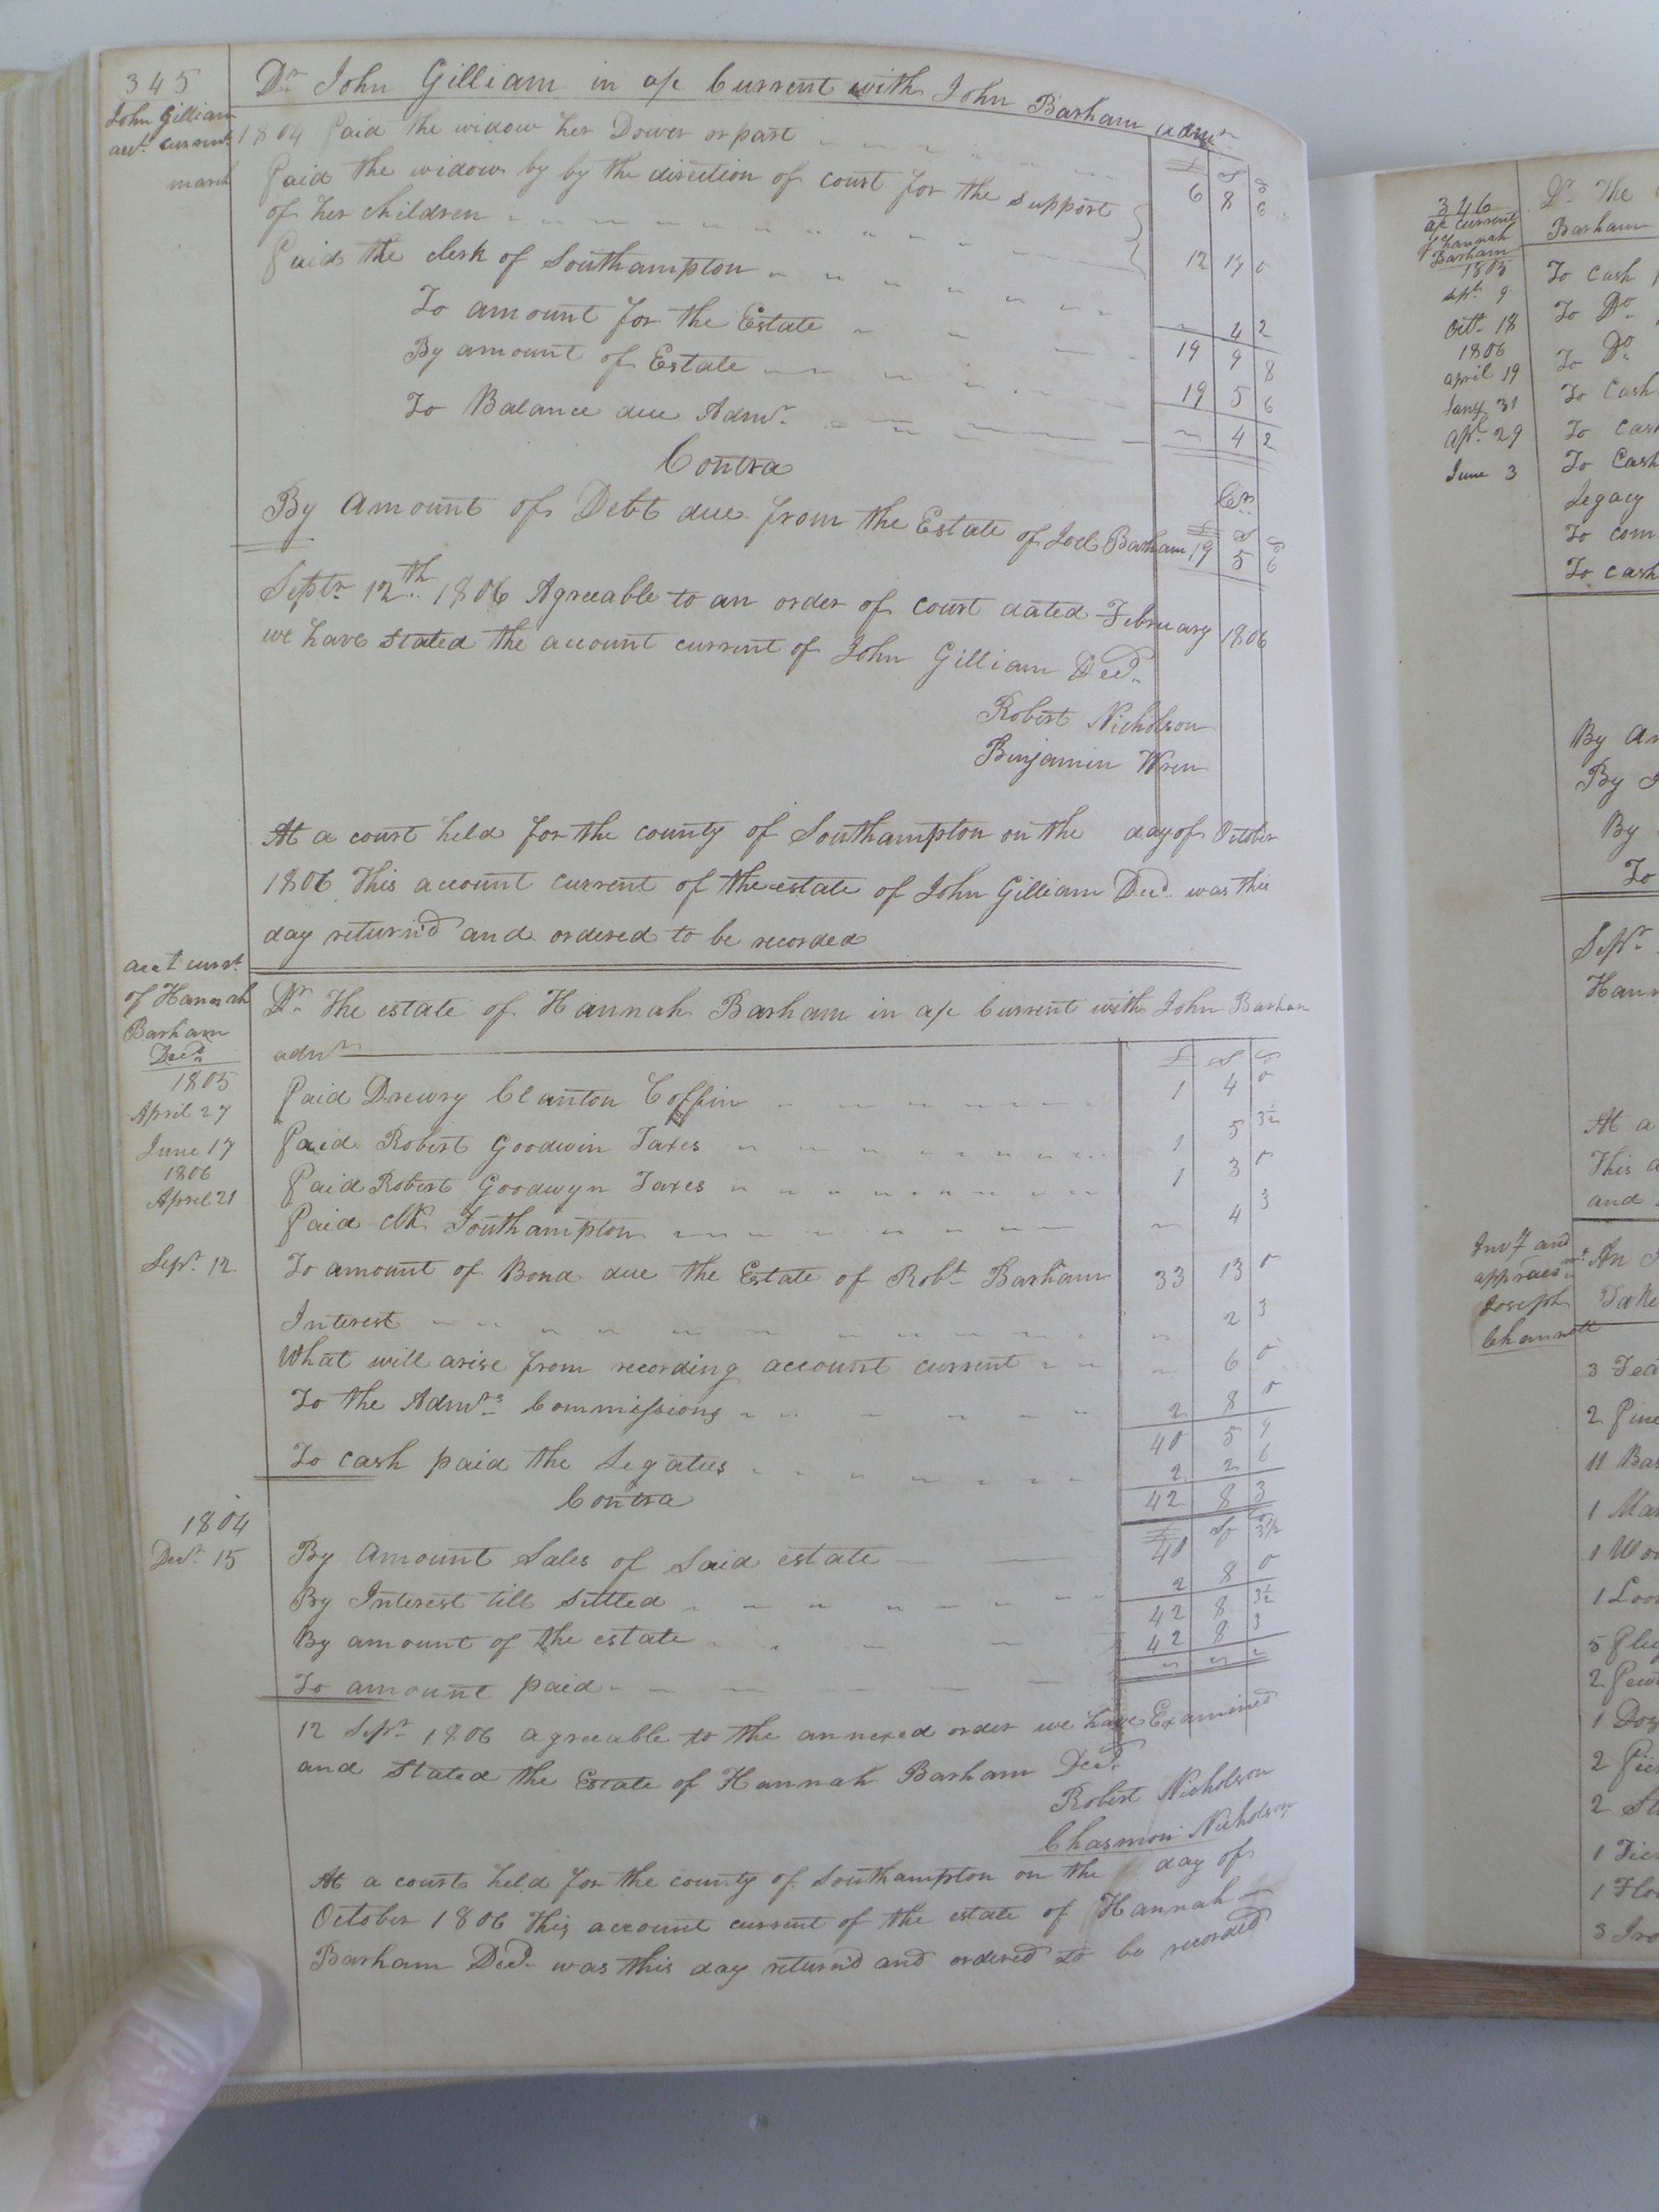 345
John Gilliam
acct. current
march
Dr. John Gilliam in a/c Current with John Barham admr
1804 Paid the widow her Dower or part
£ S d
6 8 6
Paid the widow by by the direction of court for the support
of her children
12 17 0
Paid the clerk of Southampton
~ 4 2
To amount for the Estate
19 9 8
By amount of Estate
19 5 6
To Balance due Admr.
~ 4 2
Contra
Cr.
£ S d
By Amount of Debt due from the Estate of Joel Barham 19 5 6
Septr. 12th. 1806 Agreeable to an order of court dated February 1806
we have stated the account current of John Gilliam Decd.
Robert Nicholson
Benjamin Wren
At a court held for the county of Southampton on the day of October
1806 This account current of the estate of John Gilliam Decd. was this
day return'd and ordered to be recorded
acct currt
of Hannah
Barham
Decd
Dr. The estate of Hannah Barham in a/c Current with John Barham
admr
£ S d
1805
April 27 Paid Drewry Clanton Coffin 1 4 0
June 17 Paid Robert Goodwin Taxes 1 5 3½
1806
April 21 Paid Robert Goodwyn Taxes 1 3 0
Paid clk Southampton ~ 4 3
Sepr. 12 To amount of Bond due the Estate of Robt. Barham 33 13 0
Interest ~ 2 3
What will arise from recording account current ~ 6 0
To the Admrs. Commissions 2 8 0
40 5 9
To cash paid the Legatees 2 2 6
42 8 3
Contra
£ S
1804
Decr. 15 By Amount Sales of Said estate 40 3½
By Interest till Settled 2 8 0
By amount of the estate 42 8 3½
To amount paid 42 8 3
12 Sepr. 1806 agreeable to the annexed order we have Examined
and Stated the Estate of Hannah Barham Decd.
Robert Nicholson
Nicholson
At a court held for the county of Southampton on the day of
October 1806 This account current of the estate of Hannah
Barham Decd. was this day return'd and ordered to be recorded
346
a/c current
of Hannah
Barham
Dr. The
Barham
1805
Sept. 9 To cash
Octr. 18 To Do.
1806
april 19 To Do.
Jany 31 To Cash
Apl. 29 To Cash
June 3 To Cash
Legacy
To Com
To cash
By Am
By
By
To
Sepr.
Hann
At a
This a
and
Invy and
appraesmt.
Joseph
Channell
An
Take
3 Fea
2 Pine
11 Bas
1 Mar
1 Wo
1 Loo
5
2 Pew
1 Doz
2
2 St
1
1 Flo
3 Iro